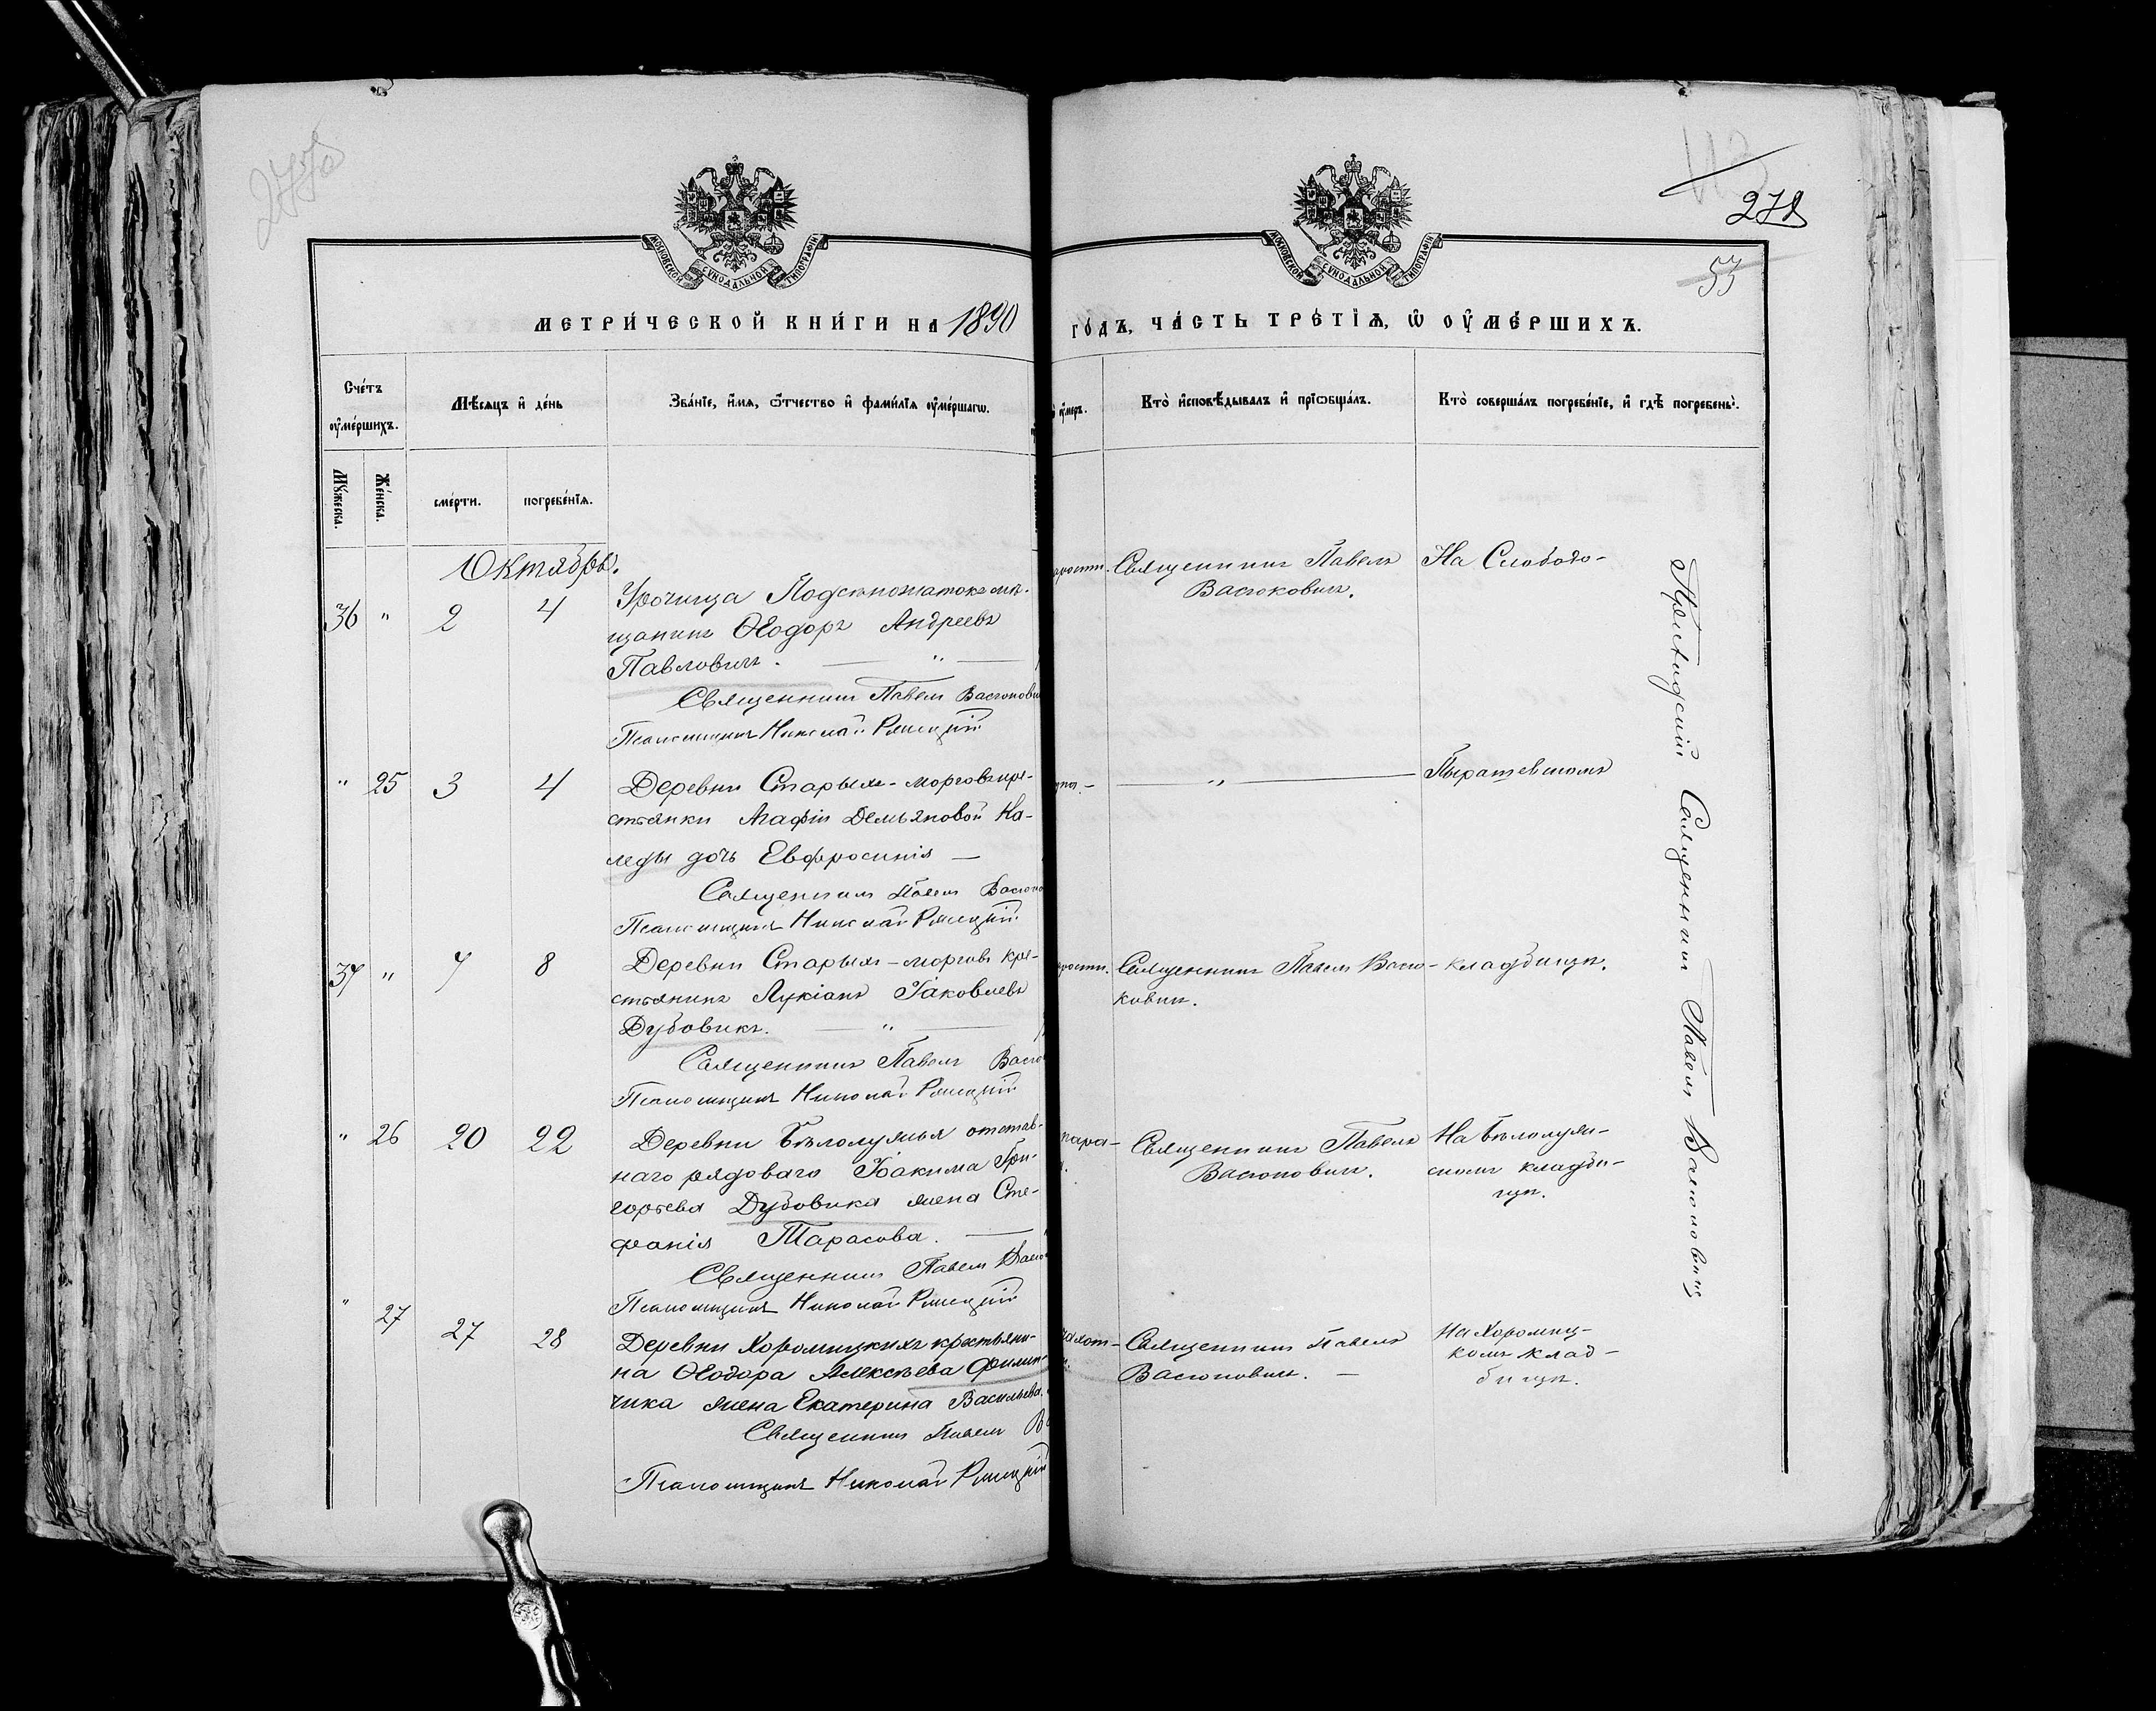 277об
278
53
МОСКОВСКОЙ СѴНОДАЛЬНОЙ ТИПОГРАФІИ
МОСКОВСКОЙ СѴНОДАЛЬНОЙ ТИПОГРАФІИ
МЕТРИ́ЧЕСКОЙ КНИ́ГИ НА 1890 ГО́ДЪ, ЧА́СТЬ ТРЕ́ТІѦ, Ѡ҆ ОУ҆МЕ́РШИХЪ.
Сче́тъ оу҆ме́ршихъ.
Мѣ́сяцъ и҆ де́нь
Зва́нїе, и҆́мѧ, ѻ҆́тчество и҆ фами́лїѧ оу҆ме́ршагѡ.
оу҆́меръ.
Кто̀ и҆сповѣ́дывалъ и҆ прїѡбща́лъ.
Кто̀ соверша́лъ погребе́нїе, и҆ гдѣ̀ погребены̀.
Му́жеска.
Же́нска.
сме́рти.
погребе́нїѧ.
Октябрь.
36 " 2 4
Урочища
щанинъ Ѳеодоръ Андреевъ
Павловичъ. — " —
Священникъ Павелъ
Псаломщикъ Николай
арости.
Священникъ Павелъ
Васюковичъ.
На Слободо-
" 25 3 4
Деревни Старыхъ-морговъ кре-
стьянки Агафіи Демьяновой Ка-
леды дочь Евфросинія —
Священникъ Павелъ
Псаломщикъ Николай
— " —
37 " 7 8
Деревни Старыхъ-морговъ кре-
стьянинъ Лукіанъ Іаковлевъ
Дубовикъ. — " —
Священникъ Павелъ Васю
Псаломщикъ Николай
рости.
Священникъ Павелъ Васю-
ковичъ.
кладбищѣ.
" 26 20 22
Деревни Бѣлолужья отстав-
наго рядоваго Іоакима Гри-
горьева Дубовика жена Сте-
фанія Тарасова. —
Священникъ Павелъ Васю
Псаломщикъ Николай
пара-
Священникъ Павелъ
Васюковичъ.
На Бѣлолуж-
скомъ кладби-
щѣ.
" 27 27 28
Деревни Хоромицкихъ крестьяни-
на Ѳеодора Алексѣева Филип-
чика жена Екатерина Васильева.
Священникъ Павелъ В
Псаломщикъ Николай
чахот-
Священникъ Павелъ
Васюковичъ. —
На Хоромиц-
комъ клад-
бищѣ.
Священникъ Павелъ Васюковичъ